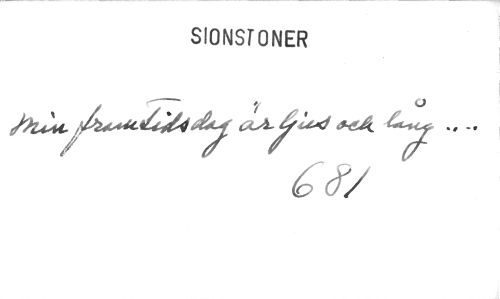 SIONSTONER
Min framtidsdag är ljus och lång ....
681